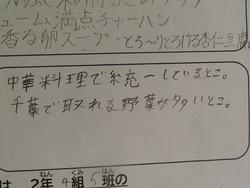 ューム満点チャーハン
香る卵スープ とろ〜りとろける杏仁豆腐
中華料理で統一しているとこ。
千葉で取れる野菜が多いとこ。
は 2年 4組 5班の
ねん くみ はん